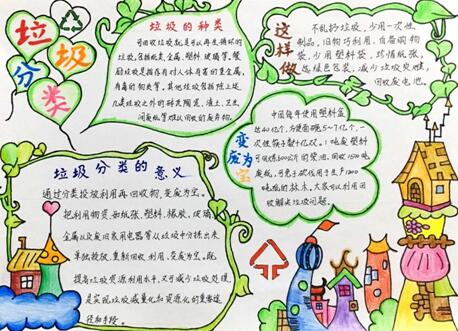 垃圾
分类
垃圾的种类
可回收垃圾就是可以再生循环的
垃圾,包括纸类,金属,塑料,玻璃等,餐
厨垃圾
有毒的物质等,其他垃圾包括除上述
几类垃圾之外的砖瓦陶瓷,渣土,卫生
间废纸等难以回收的废弃物。
这样做
不乱扔垃圾,少用一次性
制品,旧物巧利用,自备购物
袋,少用塑料袋,珍惜纸张,
选绿色包装,减少垃圾灾难,
回收废电池。
变废为宝
中国每年使用塑料盒
达40亿个,方便面碗5~7亿个,一
次性筷子数十亿双。1吨废塑
料可回炼600公斤的柴油。回收1500吨
废纸,可免于砍伐用于生产1200
吨纸的林木,大家可以利用回
收解决垃圾问题。
垃圾分类的意义
通过分类投放利用再回收物,变废为宝。
把利用物资,如纸张、塑料、橡胶、玻璃、
金属以及废旧家用电器等从垃圾中分拣出来
单独投放,重新回收,利用,变废为宝。既
提高垃圾资源利用水平,又可减少垃圾处理,
是实现垃圾减量化和资源化的重要途
径和手段。